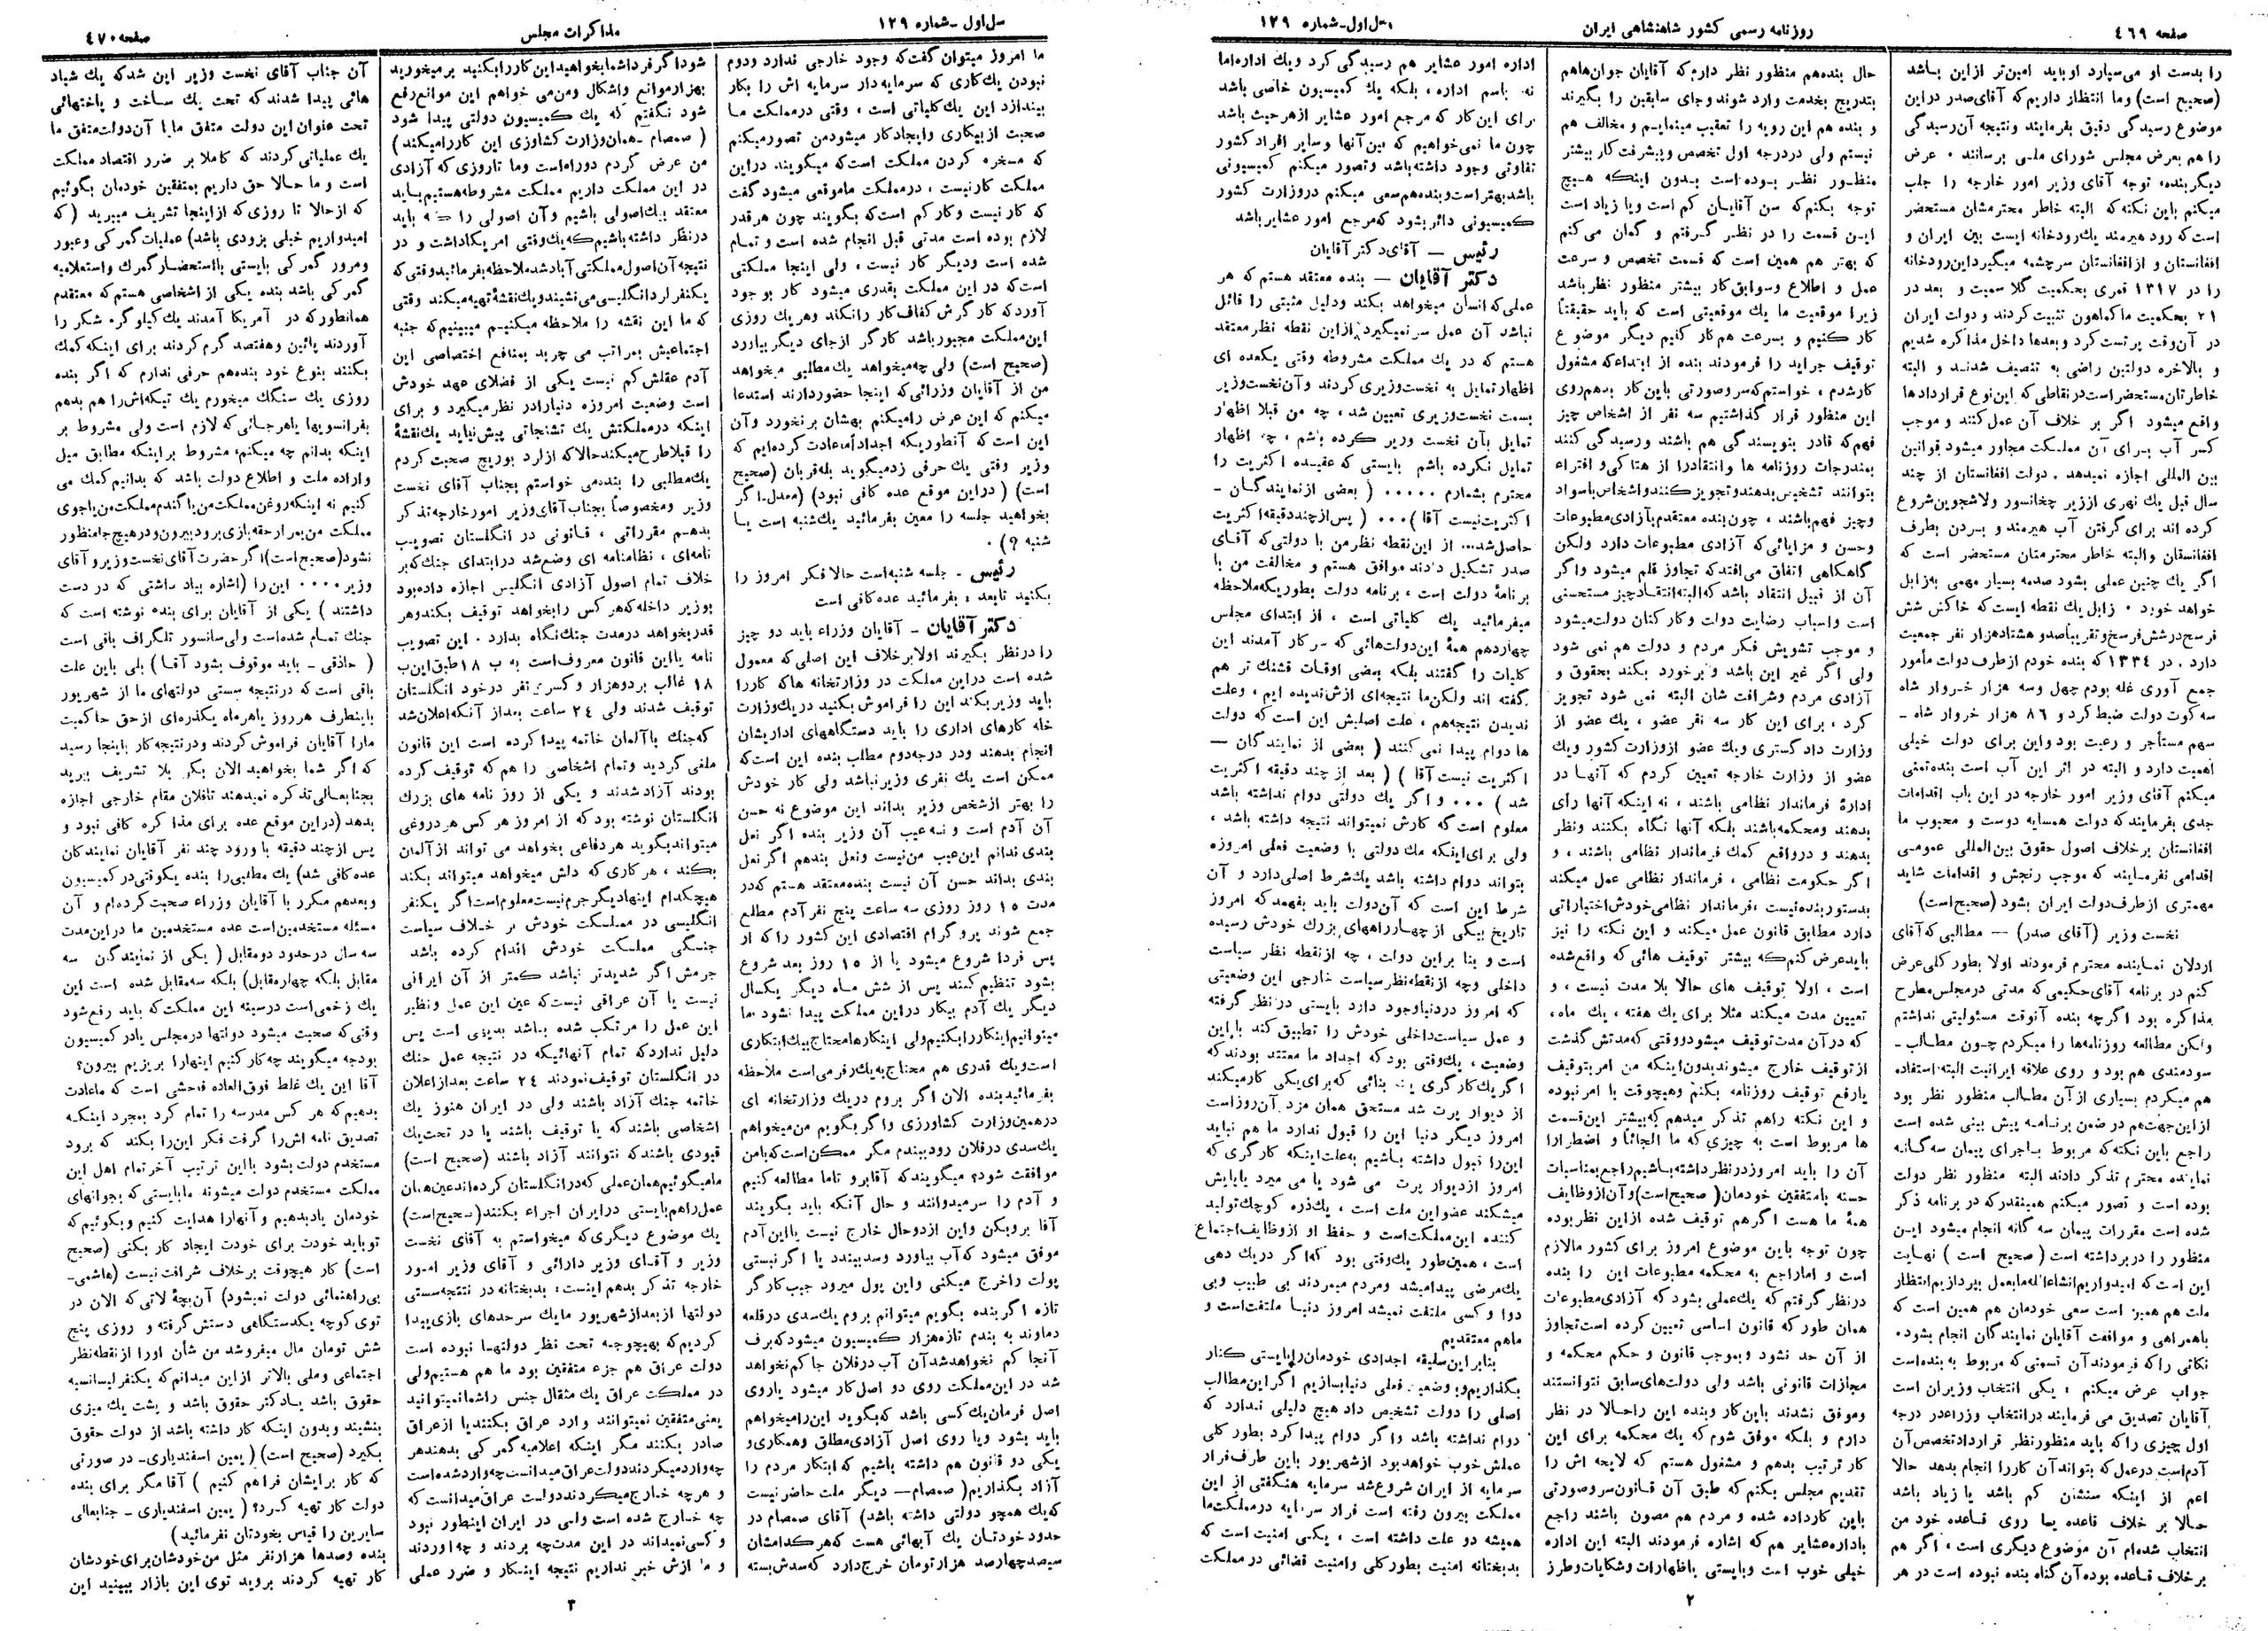 صفحه ٤٦٩
روزنامه رسمی کشور شاهنشاهی ایران
سال اول-شماره ۱۲۹
را بدست او می‌سپارد او باید امین‌تر از این باشد
(صحیح است) وما انتظار داریم که آقای صدر در این
موضوع رسیدگی دقیق بفرمایند ونتیجه آن رسیدگی
را هم بعرض مجلس شورای ملی برسانند . عرض
دیگر بنده، توجه آقای وزیر امور خارجه را جلب
میکنم باین نکته که البته خاطر محترمشان مستحضر
است که رود هیرمند یك رودخانه ایست بین ایران و
افغانستان و از افغانستان سرچشمه میگیرد این رودخانه
را در ۱۳۱۷ قمری بحکمیت گلاسمیت و بعد در
۲۱ بحکمیت ماکماهون تثبیت کردند و دولت ایران
در آن وقت پرتست کرد و بعدها داخل مذاکره شدیم
و بالاخره دولتین راضی به تنصیف شدند و البته
خاطرتان مستحضر است در نقاطی که این نوع قراردادها
واقع میشود اگر بر خلاف آن عمل کنند و موجب
کسر آب برای آن مملکت مجاور میشود قوانین
بین المللی اجازه نمیدهد . دولت افغانستان از چند
سال قبل یك نهری از زیر چخانسور ولاشجوین شروع
کرده اند برای گرفتن آب هیرمند و بردن بطرف
افغانستان والبته خاطر محترمتان مستحضر است که
اگر یك چنین عملی بشود صدمه بسیار مهمی به زابل
خواهد خورد . زابل یك نقطه ایست که خاکش شش
فرسخ در شش فرسخ و تقریباً صد و هشتاد هزار نفر جمعیت
دارد . در ۱۳۳٤ که بنده خودم از طرف دولت مأمور
جمع آوری غله بودم چهل وسه هزار خروار شاه
سه کوت دولت ضبط کرد و ۸٦ هزار خروار شاه -
سهم مستأجر و رعیت بود واین برای دولت خیلی
اهمیت دارد و البته در اثر این آب است بنده تمنی
میکنم آقای وزیر امور خارجه در این باب اقدامات
جدی بفرمایند که دولت همسایه دوست و محبوب ما
افغانستان برخلاف اصول حقوق بین‌المللی عمومی
اقدامی نفرمایند که موجب رنجش و اقدامات شاید
مهمتری از طرف دولت ایران بشود (صحیح است)
نخست وزیر (آقای صدر) — مطالبی که آقای
اردلان نماینده محترم فرمودند اولا بطور کلی عرض
کنم در برنامه آقای حکیمی که مدتی در مجلس مطرح
مذاکره بود اگرچه بنده آنوقت مسئولیتی نداشتم
ولکن مطالعه روزنامه‌ها را میکردم چون مطالب -
سودمندی هم بود و روی علاقه ایرانیت البته استفاده
هم میکردم بسیاری از آن مطالب منظور نظر بود
از این جهت هم در ضمن برنامه پیش بینی شده است
راجع باین نکته که مربوط باجرای پیمان سه گانه
نماینده محترم تذکر دادند البته منظور نظر دولت
بوده است و تصور میکنم همینقدر که در برنامه ذکر
شده است مقررات پیمان سه گانه انجام میشود این
منظور را در برداشته است (صحیح است) نهایت
این است که امیدواریم انشاءالله ما بعمل بپردازیم انتظار
ملت هم همین است سعی خودمان هم همین است که
باهمراهی و موافقت آقایان نمایندگان انجام بشود.
نکاتی را که فرمودند آن قسمتی که مربوط به بنده است
جواب عرض میکنم : یکی انتخاب وزیران است
آقایان تصدیق می فرمایند در انتخاب وزراء در درجه
اول چیزی را که باید منظور نظر قرارداد تخصص آن
آدم است در عمل که بتواند آن کار را انجام بدهد حالا
اعم از اینکه سنشان کم باشد یا زیاد باشد
حالا بر خلاف قاعده یا روی قاعده خود من
انتخاب شده‌ام آن موضوع دیگری است ، اگر هم
برخلاف قاعده بوده آن گناه بنده نبوده است در هر
حال بنده هم منظور نظر دارم که آقایان جوان‌ها هم
بتدریج بخدمت وارد شوند وجای سابقین را بگیرند
و بنده هم این رویه را تعقیب مینمایم و مخالف هم
نیستم ولی در درجه اول تخصص و پیشرفت کار بیشتر
منظور نظر بوده است بدون اینکه هیچ
توجه بکنم که سن آقایان کم است ویا زیاد است
این قسمت را در نظر گرفتم و گمان می‌کنم
که بهتر هم همین است که قسمت تخصص و سرعت
عمل و اطلاع وسوابق کار بیشتر منظور نظر باشد
زیرا موقعیت ما یك موقعیتی است که باید حقیقتاً
کار کنیم و بسرعت هم کار کنیم دیگر موضوع
توقیف جراید را فرمودند بنده از ابتداء که مشغول
کار شدم ، خواستم که سر وصورتی باین کار بدهم روی
این منظور قرار گذاشتیم سه نفر از اشخاص چیز
فهم که قادر بنویسندگی هم باشند و رسیدگی کنند
بمندرجات روزنامه ها و انتقاد را از هتاکی و افتراء
بتوانند تشخیص بدهند و تجویز کنند و اشخاص باسواد
وچیز فهم باشند ، چون بنده معتقدم بآزادی مطبوعات
وحسن و مزایائی که آزادی مطبوعات دارد ولکن
گاهگاهی اتفاق می‌افتد که تجاوز قلم میشود واگر
آن از قبیل انتقاد باشد که البته انتقاد چیز مستحسنی
است واسباب رضایت دولت وکارکنان دولت میشود
و موجب تشویش فکر مردم و دولت هم نمی شود
ولی اگر غیر این باشد و برخورد بکند بحقوق و
آزادی مردم وشرافت شان البته نمی شود تجویز
کرد ، برای این کار سه نفر عضو ، یك عضو از
وزارت دادگستری ویك عضو از وزارت کشور ویك
عضو از وزارت خارجه تعیین کردم که آنها در
ادارۀ فرماندار نظامی باشند ، نه اینکه آنها رأی
بدهند ومحکمه باشند بلکه آنها نگاه بکنند ونظر
بدهند و در واقع کمك فرماندار نظامی باشند ، و
اگر حکومت نظامی ، فرماندار نظامی عمل میکند
بدستور بنده نیست ، فرماندار نظامی خودش اختیاراتی
دارد مطابق قانون عمل میکند و این نکته را نیز
باید عرض کنم که بیشتر توقیف هائی که واقع شده
است ، اولا توقیف های حالا بلا مدت نیست ، و
تعیین مدت میکند مثلا برای یك هفته ، یك ماه ،
که در آن مدت توقیف میشود و وقتی که مدتش گذشت
از توقیف خارج میشوند بدون اینکه من امر بتوقیف
یا رفع توقیف روزنامه بکنم وهیچوقت با امر نبوده
و این نکته را هم تذکر میدهم که بیشتر این قسمت
ها مربوط است به چیزی که ما الجائاً و اضطرارا
آن را باید امروز در نظر داشته باشیم راجع بمناسبات
حسنه با متفقین خودمان (صحیح است) وآن از وظایف
همۀ ما هست اگر هم توقیف شده از این نظر بوده
چون توجه باین موضوع امروز برای کشور ما لازم
است و اما راجع به محکمه مطبوعات این را بنده
در نظر گرفتم که یك عملی بشود که آزادی مطبوعات
همان طور که قانون اساسی تعیین کرده است تجاوز
از آن حد نشود و بموجب قانون و حکم محکمه و
مجازات قانونی باشد ولی دولت‌های سابق نتوانستند
وموفق نشدند باین کار وبنده این را حالا در نظر
دارم و بلکه موفق شوم که یك محکمه برای این
کار ترتیب بدهم و مشغول هستم که لایحه اش را
تقدیم مجلس بکنم که طبق آن قانون سر وصورتی
باین کار داده شده و مردم هم مصون باشند راجع
باداره عشایر هم که اشاره فرمودند البته این اداره
خیلی خوب است و بایستی باظهارات وشکایات وطرز
اداره امور عشایر هم رسیدگی کرد ویك اداره اما
نه باسم اداره ، بلکه یك کمیسیون خاصی باشد
برای این کار که مرجع امور عشایر از هر حیث باشد
چون ما نمی‌خواهیم که بین آنها وسایر افراد کشور
تفاوتی وجود داشته باشد وتصور میکنم کمیسیونی
باشد بهتر است و بنده هم سعی میکنم در وزارت کشور
کمیسیونی دائر بشود که مرجع امور عشایر باشد
رئیس — آقای دکتر آقایان
دکتر آقایان — بنده معتقد هستم که هر
عملی که انسان میخواهد بکند ودلیل مثبتی را قائل
نباشد آن عمل سر نمیگیرد از این نقطه نظر معتقد
هستم که در یك مملکت مشروطه وقتی یکعده ای
اظهار تمایل به نخست وزیری کردند وآن نخست وزیر
بسمت نخست وزیری تعیین شد ، چه من قبلا اظهار
تمایل بآن نخست وزیر کرده باشم ، چه اظهار
تمایل نکرده باشم بایستی که عقیده اکثریت را
محترم بشمارم ..... ( بعضی از نمایندگان -
اکثریت نیست آقا ) ... ( پس از چند دقیقه اکثریت
حاصل شد... از این نقطه نظر من با دولتی که آقای
صدر تشکیل دادند موافق هستم و مخالفت من با
برنامۀ دولت است ، برنامه دولت بطوریکه ملاحظه
میفرمائید یك کلیاتی است ، از ابتدای مجلس
چهاردهم همۀ این دولت‌هائی که سر کار آمدند این
کلیات را گفتند بلکه بعضی اوقات قشنگ تر هم
گفته اند ولکن ما نتیجه‌ای از ش ندیده ایم ، وعلت
ندیدن نتیجه هم ، علت اصلیش این است که دولت
ها دوام پیدا نمی کنند ( بعضی از نمایندگان —
اکثریت نیست آقا ) ( بعد از چند دقیقه اکثریت
شد ) ... و اگر یك دولتی دوام نداشته باشد
معلوم است که کارش نمیتواند نتیجه داشته باشد ،
ولی برای اینکه یك دولتی با وضعیت فعلی امروزه
بتواند دوام داشته باشد یك شرط اصلی دارد و آن
شرط این است که آن دولت باید بفهمد که امروز
تاریخ بیکی از چهارراههای بزرگ خودش رسیده
است و بنا براین دولت ، چه از نقطه نظر سیاست
داخلی وچه از نقطه نظر سیاست خارجی این وضعیتی
که امروز در دنیا وجود دارد بایستی در نظر گرفته
و عمل سیاست داخلی خودش را تطبیق کند با این
وضعیت ، یك وقتی بود که اجداد ما معتقد بودند که
اگر یك کارگری یا بنائی که برای یکی کار میکند
از دیوار پرت شد مستحق همان مزد آن روز است
امروز دیگر دنیا این را قبول ندارد ما هم نباید
این را قبول داشته باشیم به علت اینکه کارگری که
امروز از دیوار پرت می شود یا می میرد یا پایش
میشکند عضو این ملت است ، یك ذره کوچك تولید
کننده این مملکت است و حفظ او از وظایف اجتماع
است ، همین طور یك وقتی بود که اگر در یك دهی
یك مرضی پیدا میشد ومردم میمردند بی طبیب وبی
دوا و کسی ملتفت نمیشد امروز دنیا ملتفت است و
ماهم معتقدیم
بنابر این سلیقه اجدادی خودمان را بایستی کنار
بگذاریم و با وضعیت فعلی دنیا بسازیم اگر این مطالب
اصلی را دولت تشخیص داد هیچ دلیلی ندارد که
دوام نداشته باشد واگر دوام پیدا کرد بطور کلی
عملش خوب خواهد بود از شهریور باین طرف فرار
سرمایه از ایران شروع شد سرمایه هنگفتی از این
مملکت بیرون رفته است فرار سرمایه در مملکت ما
همیشه دو علت داشته است ، یکی امنیت است که
بدبختانه امنیت بطور کلی وامنیت قضائی در مملکت
۲
سال اول -شماره ۱۲۹
مذاکرات مجلس
صفحه ٤٧٠
ما امروز میتوان گفت که وجود خارجی ندارد ودوم
نبودن یك کاری که سرمایه دار سرمایه اش را بکار
بیندازد این یك کلیاتی است ، وقتی در مملکت ما
صحبت از بیکاری وایجاد کار میشود من تصور میکنم
که مسخره کردن مملکت است که میگویند در این
مملکت کار نیست ، در مملکت ما موقعی میشود گفت
که کار نیست وکار کم است که بگویند چون هر قدر
لازم بوده است مدتی قبل انجام شده است و تمام
شده است ودیگر کار نیست ، ولی اینجا مملکتی
است که در این مملکت بقدری میشود کار بوجود
آورد که کارگرش کفاف کار را نکند وهر یك روزی
این مملکت مجبور باشد کارگر از جای دیگر بیاورد
(صحیح است) ولی چه میخواهد یك مطلبی میخواهد
من از آقایان وزرائی که اینجا حضور دارند استدعا
میکنم که این عرض را میکنم بهشان برنخورد وآن
این است که آنطوریکه اجداداً ما عادت کرده‌ایم که
وزیر وقتی یك حرفی زد میگوید بله قربان (صحیح
است) ( در این موقع عده کافی نبود) (معدل-اگر
بخواهید جلسه را معین بفرمائید یك شنبه است یا
شنبه ؟) .
رئیس - جلسه شنبه است حالا فکر امروز را
بکنید تا بعد ، بفرمائید عده کافی است
دکتر آقایان - آقایان وزراء باید دو چیز
را در نظر بگیرند اولا بر خلاف این اصلی که معمول
شده است در این مملکت در وزارتخانه ها که کار را
باید وزیر بکند این را فراموش بکنید در یك وزارت
خانه کارهای اداری را باید دستگاههای اداریشان
انجام بدهند ودر درجه دوم مطلب بنده این است که
ممکن است یك نفری وزیر نباشد ولی کار خودش
را بهتر از شخص وزیر بداند این موضوع نه حسن
آن آدم است و نه عیب آن وزیر بنده اگر نعل
بندی ندانم این عیب من نیست ونعل بندهم اگر نعل
بندی بداند حسن آن نیست بنده معتقد هستم که در
مدت ۱٥ روز روزی سه ساعت پنج نفر آدم مطلع
جمع شوند پروگرام اقتصادی این کشور را که از
پس فردا شروع میشود یا از ۱٥ روز بعد شروع
بشود تنظیم کنند پس از شش ماه دیگر یکسال
دیگر یك آدم بیکار در این مملکت پیدا نشود ما
میتوانیم اینکار را بکنیم ولی اینکارها محتاج بیك ابتکاری
است ویك قدری هم محتاج به یك رفرمی است ملاحظه
بفرمائید بنده الان اگر بروم در یك وزارتخانه ای
در همین وزارت کشاورزی واگر بگویم من میخواهم
یك سدی در فلان رود ببندم مگر ممکن است که بامن
موافقت شود؟ میگویند که آقا برو تا ما مطالعه کنیم
و آدم را سر میدوانند و حال آنکه باید بگویند
آقا برو بکن واین از دو حال خارج نیست یا این آدم
موفق میشود که آب بیاورد وسد ببندد یا اگر نیستی
پولت را خرج میکنی واین پول میرود جیب کارگر
تازه اگر بنده بگویم میتوانم بروم یك سدی در قلعه
دماوند به بندم تازه هزار کمیسیون میشود که برف
آنجا کم نخواهد شد آن آب در فلان جا کم نخواهد
شد در این مملکت روی دو اصل کار میشود یا روی
اصل فرمان یك کسی باشد که بگوید این را میخواهم
باید بشود ویا روی اصل آزادی مطلق وهمکاری و
یکی دو قانون هم داشته باشیم که ابتکار مردم را
آزاد بگذاریم (صمصام— دیگر ملت حاضر نیست
که یك همچو دولتی داشته باشد) آقای صمصام در
حدود خودتان یك آبهائی هست که هر کدامشان
سیصد چهارصد هزار تومان خرج دارد که سدش بسته
شود اگر فردا شما بخواهید این کار را بکنید بر میخورید
بهزار موانع واشکال ومن می خواهم این موانع رفع
شود نگفتم که یك کمیسیون دولتی پیدا شود
( صمصام -همان وزارت کشاورزی این کار را میکند )
من عرض کردم دو راه است وما تا روزی که آزادی
در این مملکت داریم مملکت مشروطه هستیم باید
معتقد بیك اصولی باشیم وآن اصولی را که باید
در نظر داشته باشیم که یك وقتی امریکا داشت و در
نتیجه آن اصول مملکتی آباد شد ملاحظه بفرمائید وقتی که
یکنفر لرد انگلیسی می نشیند ویك نقشۀ تهیه میکند وقتی
که ما این نقشه را ملاحظه میکنیم میبینیم که جنبه
اجتماعیش بمراتب می چربد بمنافع اختصاصی این
آدم عقلش کم نیست یکی از فضلای عهد خودش
است وضعیت امروزه دنیا را در نظر میگیرد و برای
اینکه در مملکتش یك تشنجاتی پیش نیاید یك نقشۀ
را قبلا طرح میکند حالا که از لرد بوریج صحبت کردم
یك مطلبی را بنده می خواستم بجناب آقای نخست
وزیر ومخصوصاً بجناب آقای وزیر امور خارجه تذکر
بدهم مقرراتی ، قانونی در انگلستان تصویب
نامه‌ای ، نظامنامه ای وضع شد در ابتدای جنك که بر
خلاف تمام اصول آزادی انگلیس اجازه داده بود
بوزیر داخله که هر کس را بخواهد توقیف بکند وهر
قدر بخواهد در مدت جنك نگاه بدارد . این تصویب
نامه یا این قانون معروف است به ب ۱۸ طبق این ب
۱۸ غالب بر دو هزار و کسری نفر در خود انگلستان
توقیف شدند ولی ۲٤ ساعت بعد از آنکه اعلان شد
که جنك با آلمان خاتمه پیدا کرده است این قانون
ملغی گردید وتمام اشخاصی را هم که توقیف کرده
بودند آزاد شدند و یکی از روز نامه های بزرك
انگلستان نوشته بود که از امروز هر کس هر دروغی
میتواند بگوید هر دفاعی بخواهد می تواند از آلمان
بکند ، هر کاری که دلش میخواهد میتواند بکند
هیچکدام اینها دیگر جرم نیست معلوم است اگر یکنفر
انگلیسی در مملکت خودش بر خلاف سیاست
جنگی مملکت خودش اقدام کرده باشد
جرمش اگر شدیدتر نباشد کمتر از آن ایرانی
نیست یا آن عراقی نیست که عین این عمل ونظیر
این عمل را مرتکب شده باشد بدیهی است پس
دلیل ندارد که تمام آنهائیکه در نتیجه عمل جنك
در انگلستان توقیف نمودند ۲٤ ساعت بعد از اعلان
خاتمه جنك آزاد باشند ولی در ایران هنوز یك
اشخاصی باشند که یا توقیف باشند یا در تحت یك
قیودی باشند که نتوانند آزاد باشند (صحیح است)
ما میگوئیم همان عملی که در انگلستان کرده اند عین همان
عمل را هم بایستی در ایران اجراء بکنند (صحیح است)
یك موضوع دیگری که میخواستم به آقای نخست
وزیر و آقای وزیر دارائی و آقای وزیر امور
خارجه تذکر بدهم اینست : بدبختانه در نتیجه سستی
دولتها از بعد از شهریور ما یك سرحدهای بازی پیدا
کردیم که بهیچوجه تحت نظر دولتها نبوده است
دولت عراق هم جزء متفقین بود ما هم هستیم ولی
در مملکت عراق یك مثقال جنس را شما نمیتوانید
یعنی متفقین نمیتوانند وارد عراق بکنند یا از عراق
صادر بکنند مگر اینکه اعلامیه گمرکی بدهند هر
چه وارد میکردند دولت عراق میدانست چه وارد شده است
و هرچه خارج میکردند دولت عراق میدانست که
چه خارج شده است ولی در ایران اینطور نبود
و کسی نمیداند در این مدت چه بردند و چه آوردند
و ما ازش خبر نداریم نتیجه اینکار و ضرر عملی
آن جناب آقای نخست وزیر این شد که یك شیاد
هائی پیدا شدند که تحت یك ساخت و پاختهائی
تحت عنوان این دولت متفق ما یا آن دولت متفق ما
یك عملیاتی کردند که کاملا بر ضرر اقتصاد مملکت
است و ما حالا حق داریم بمتفقین خودمان بگوئیم
که از حالا تا روزی که از اینجا تشریف میبرید (که
امیدواریم خیلی بزودی باشد) عملیات گمرکی وعبور
ومرور گمرکی بایستی با استحضار گمرك واستعلامیه
گمرکی باشد بنده یکی از اشخاصی هستم که معتقدم
همانطور که در آمریکا آمدند یك کیلو گرم شکر را
آوردند پائین وهفتصد گرم کردند برای اینکه کمك
بکنند بنوع خود بنده هم حرفی ندارم که اگر بنده
روزی یك سنگك میخورم یك تیکه‌اش را هم بدهم
بفرانسویها یا هر جائی که لازم است ولی مشروط بر
اینکه بدانم چه میکنم، مشروط بر اینکه مطابق میل
واراده ملت و اطلاع دولت باشد که بدانیم کمك می
کنیم نه اینکه روغن مملکت من یا گندم مملکت من یا جوی
مملکت من بمرار حقه بازی برود بیرون ودر هیچ جا منظور
نشود (صحیح است) اگر حضرت آقای نخست وزیر و آقای
وزیر .... این را (اشاره بیاد داشتی که در دست
داشتند ) یکی از آقایان برای بنده نوشته است که
جنك تمام شده است ولی سانسور تلگراف باقی است
( حاذقی - باید موقوف بشود آقا ) بلی باین علت
باقی است که در نتیجه سستی دولتهای ما از شهریور
باینطرف هر روز یا هر ماه یك ذره‌ای از حق حاکمیت
ما را آقایان فراموش کردند ودر نتیجه کار باینجا رسید
که اگر شما بخواهید الان بکر بلا تشریف ببرید
بجنابعالی تذکره نمیدهند تا فلان مقام خارجی اجازه
بدهد (در این موقع عده برای مذاکره کافی نبود و
پس از چند دقیقه با ورود چند نفر آقایان نمایندگان
عده کافی شد) یك مطلبی را بنده یکوقتی در کمیسیون
و بعدهم مکرر با آقایان وزراء صحبت کرده‌ام و آن
مسئله مستخدمین است عده مستخدمین ما در این مدت
سه سال در حدود دو مقابل ( یکی از نمایندگان سه
مقابل بلکه چهار مقابل) بلکه سه مقابل شده است این
یك زخمی است در سینه این مملکت که باید رفع شود
وقتی که صحبت میشود دولتها در مجلس یا در کمیسیون
بودجه میگویند چه کار کنیم اینها را بریزیم بیرون؟
آقا این یك غلط فوق‌العاده فاحشی است که ما عادت
بدهیم که هر کس مدرسه را تمام کرد بمجرد اینکه
تصدیق نامه اش را گرفت فکر این را بکند که برود
مستخدم دولت بشود با این ترتیب آخر تمام اهل این
مملکت مستخدم دولت میشوند ما بایستی که بجوانهای
خودمان یاد بدهیم و آنها را هدایت کنیم و بگوئیم که
تو باید خودت برای خودت ایجاد کار بکنی (صحیح
است) کار هیچوقت بر خلاف شرافت نیست (هاشمی-
بی راهنمائی دولت نمیشود) آن بچۀ لاتی که الان در
توی کوچه یکدستگاهی دستش گرفته و روزی پنج
شش تومان مال میفروشد من شأن او را از نقطه نظر
اجتماعی وملی بالاتر از این میدانم که یکنفر لیسانسیه
حقوق باشد یا دکتر حقوق باشد و پشت یك میزی
بنشیند وبدون اینکه کار داشته باشد از دولت حقوق
بگیرد (صحیح است) ( یمین اسفندیاری- در صورتی
که کار برایشان فراهم کنیم ) آقا مگر برای بنده
دولت کار تهیه کرد؟ ( یمین اسفندیاری - جنابعالی
سایرین را قیاس بخودتان نفرمائید)
بنده وصدها هزار نفر مثل من خودشان برای خودشان
کار تهیه کردند بروید توی این بازار ببینید این
۳